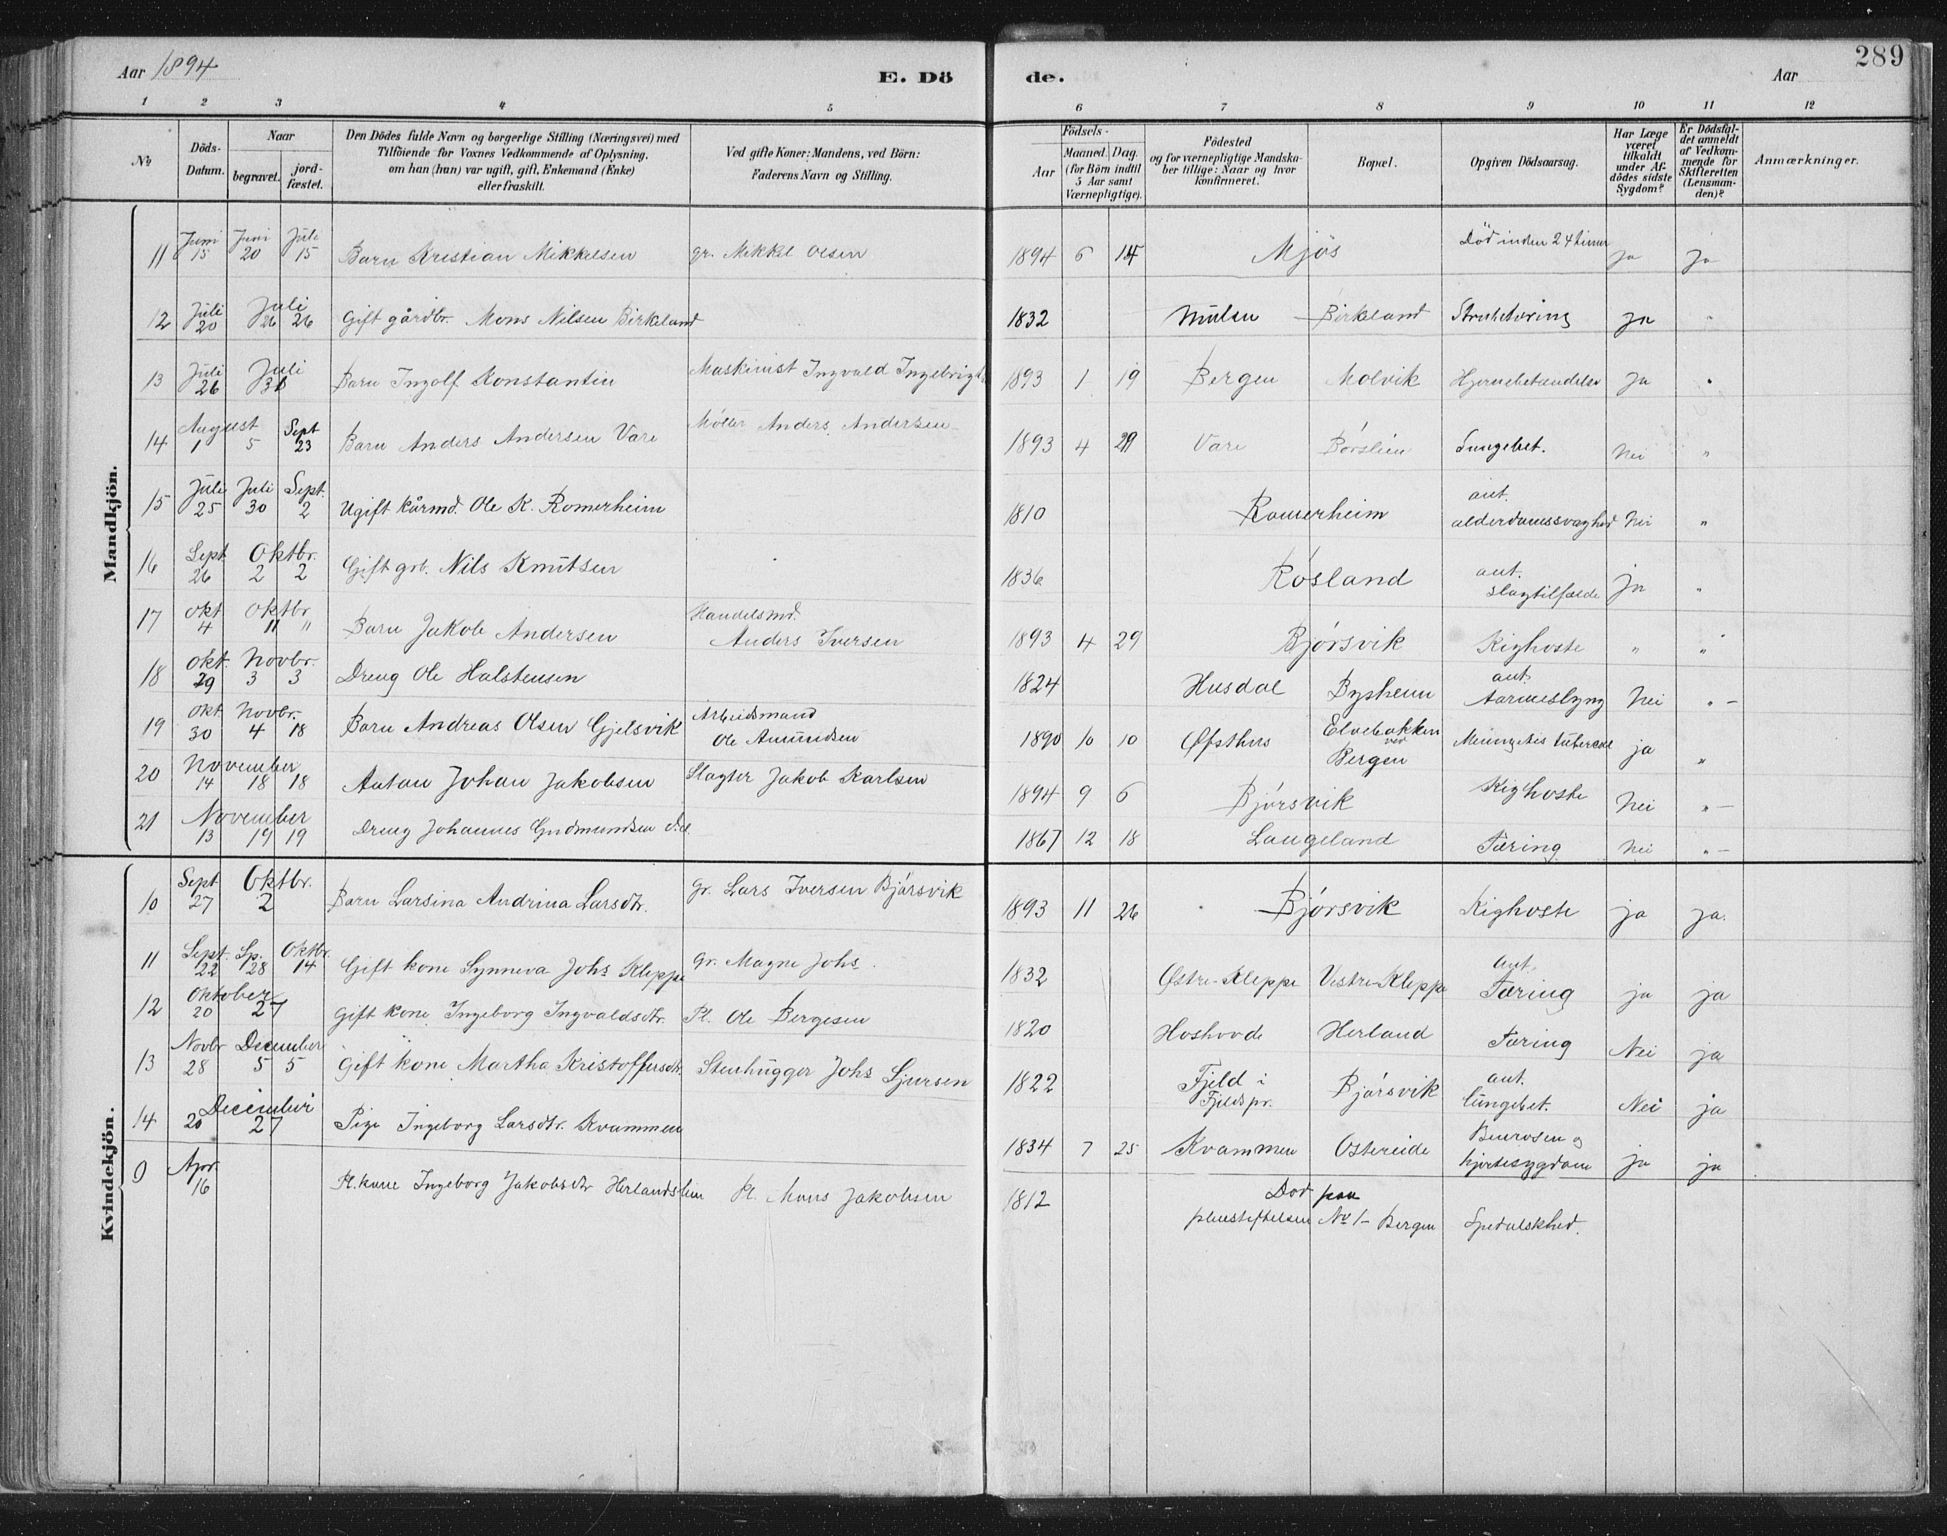 289
Aar 1894 E. Dö de. Aar
1 2 3 4 5 6 7 8 9 10 11 12
No
Döds-Datum.
Naar
begravet.
jord-fæstet.
Den Dödes fulde Navn og borgerlige Stilling (Næringsvei) med
Tilföiende for Voxnes Vedkommende af Oplysning,
om han (hun) var ugift, gift, Enkemand (Enke)
eller fraskilt.
Ved gifte Koner: Mandens, ved Börn:
Faderens Navn og Stilling.
Födsels-
Aar
Maaned. Dag.
(for Börn indtil
5 Aar samt
Værnepligtige).
Födested
og for værnepligtige Mandska-
ber tillige: Naar og hvor
konfirmeret.
Bopæl.
Opgiven Dödsaarsag.
Har Læge
været
tilkaldt
under Af-
dödes sidste
Sygdom?
Er Dödsfal-
det anmeldt
af Vedkom-
mende for
Skifteretten
(Lensman-
den)?
Anmærkninger.
Mandkjön.
11 Juni 15 Juni 20 Juli 15 Barn Kristian Mikkelsen gr. Mikkel Olsen 1894 6 15 Mjøs Död inden 24 timer ja ja
12 Juli 20 Juli 26 26 Gift gårdbr. Mons Nilsen Birkeland 1832 Mulen Birkeland Strubetæring Ja "
13 Juli 26 Juli 31 Barn Ingolf Konstantin Maskinist Ingvald 1893 1 19 Bergen Molvik Hjernebetændelse Ja "
14 August 1 5 Sept 23 Barn Anders Andersen Vare Møller Anders Andersen 1893 4 29 Vare Børslien Lungebet. Nei "
15 Juli 25 Juli 30 Sept. 2 Ugift kårmd. Ole K. Romerheim 1810 Romerheim ant. alderdomssvaghed Nei "
16 Sept 26 Oktbr. 2 2 Gift grb. Nils Knutsen 1836 Røsland ant. slagtilfælde Ja "
17 Okt 4 Oktbr. 11 " Barn Jakob Andersen Handelsmd. Anders Iversen 1893 4 29 Bjørsvik Kighoste " "
18 Okt. 29 Novbr. 3 3 Dreng Ole Halstensen 1824 Husdal Bysheim ant. Nei "
19 Okt 30 Novbr. 4 18 Barn Andreas Olsen Gjelsvik Arbeidsmand Ole Amundsen 1890 10 10 Øfsthus Elvebakken ved Bergen ja "
20 November 14 18 18 Antan Johan Jakobsen Slagter Jakob Karlsen 1894 9 6 Bjørsvik Kighoste Nei "
21 November 13 19 19 Dreng Johannes Gudmundsen 1867 12 18 Langeland Tæring Nei "
Kvindekjön.
10 Sept 27 Oktbr. 2 Barn Larsina Andrina Larsdtr. gr. Lars Iversen Bjørsvik 1893 11 26 Bjørsvik Kighoste ja ja.
11 Sept. 22 Sp. 28 Oktbr. 14 Gift kone Synneva Johs Kleppe gr. Magne Johs. 1832 Østre-Kleppe Vestre-Kleppe ant. Tæring ja ja
12 Oktober 20 27 Gift kone Ingeborg Ingvaldsdtr. Pl. Ole Bergesen 1820 Hoshovde Herland Tæring Nei ja
13 Novbr 28 December 5 5 Gift kone Martha Kristoffersdtr. Stenhugger Johs Sjursen 1822 Fjeld i Fjelds pr. Bjørsvik ant. lungebet. Nei ja
14 December 20 27 Pige Ingeborg Larsdtr. Kvammen 1834 7 25 Kvammen Ostereide Benrosen og hjertesygdom ja ja
9 Apr. 16 Pl. kone Ingeborg Jakobsdtr Herlandslien Pl. Mons Jakobsen 1812 Død paa pleiestiftelsen No 1 - Bergen Spedalskhed.